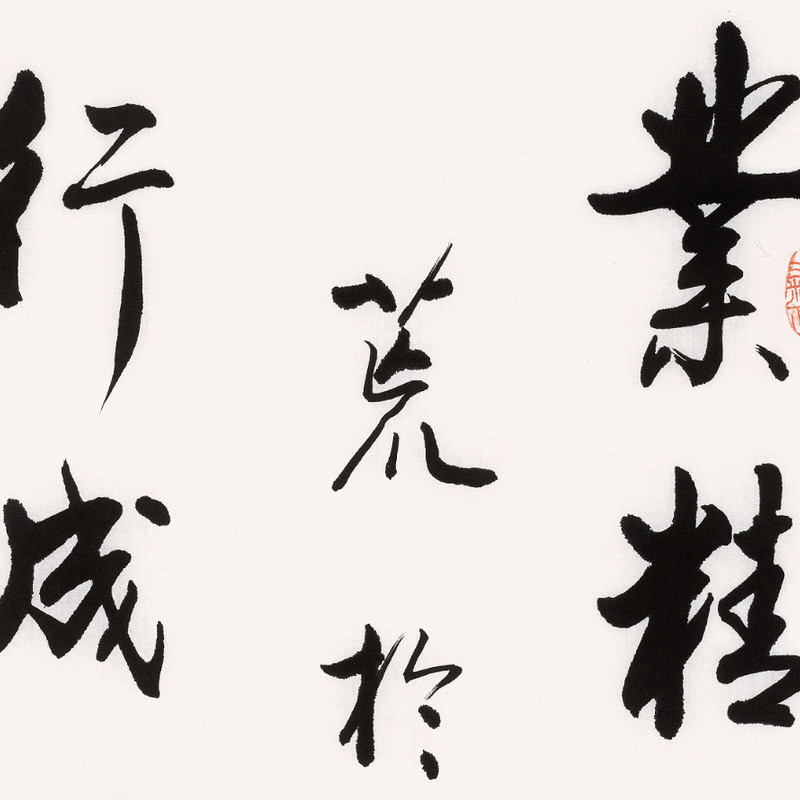 業精
荒於
行成